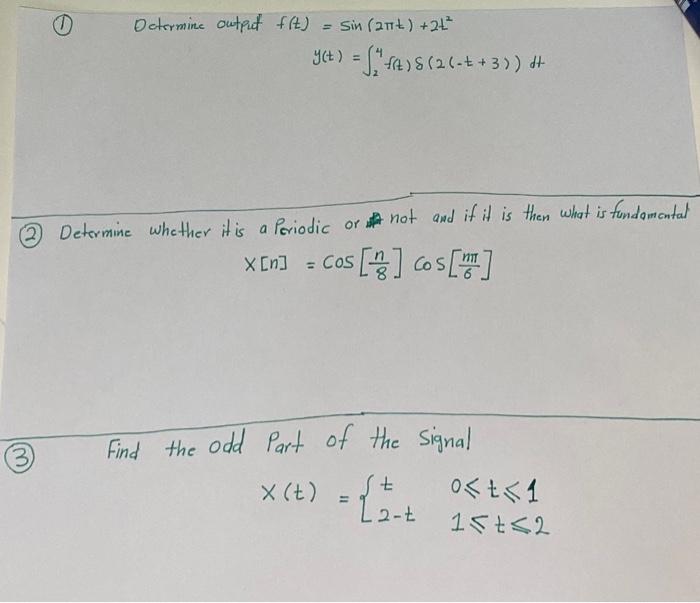 ① Determine output f(t) = sin(2πt) + 2t²
y(t) = ∫₂⁴ f(t) δ(2(-t+3)) dt
② Determine whether it is a Periodic or not and if it is then what is fundamental
X[n] = cos[n/8] cos[nπ/6]
③ Find the odd Part of the signal
X(t) = { t 0≤t≤1
2-t 1≤t≤2